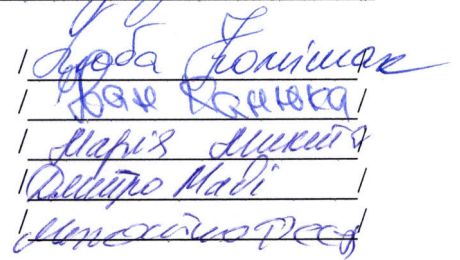 / Люба Поліщак
/ Іван Канюка /
/ Марія Микита /
/ Дмитро Мабі /
/ /